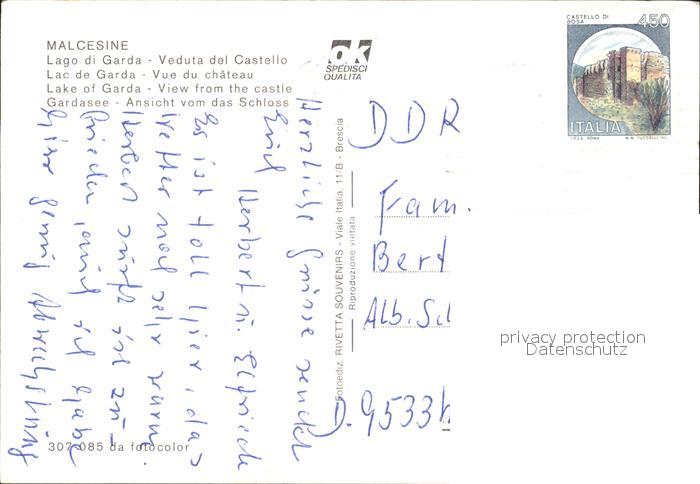 MALCESINE
Lago di Garda - Veduta del Castello
Lac de Garda - Vue du château
Lake of Garda - View from the castle
Gardasee - Ansicht vom das Schloss
OK
SPEDISCI
QUALITA
CASTELLO DI
BOSA
450
ITALIA
I.P.Z.S. ROMA
Fotoediz. RIVETTA SOUVENIRS - Viale Italia, 11/B - Brescia
Riproduzione vietata
DDR
Fam.
Bert
Alb. Sch
D. 9533
Herzliche Grüsse sendet
Euch
Herbert u. Elfriede
Es ist toll hier, das
Wetter noch sehr warm.
Herbert ist zu-
frieden, und ich habe
hier genug Abwechslung
307 085 da fotocolor
privacy protection
Datenschutz